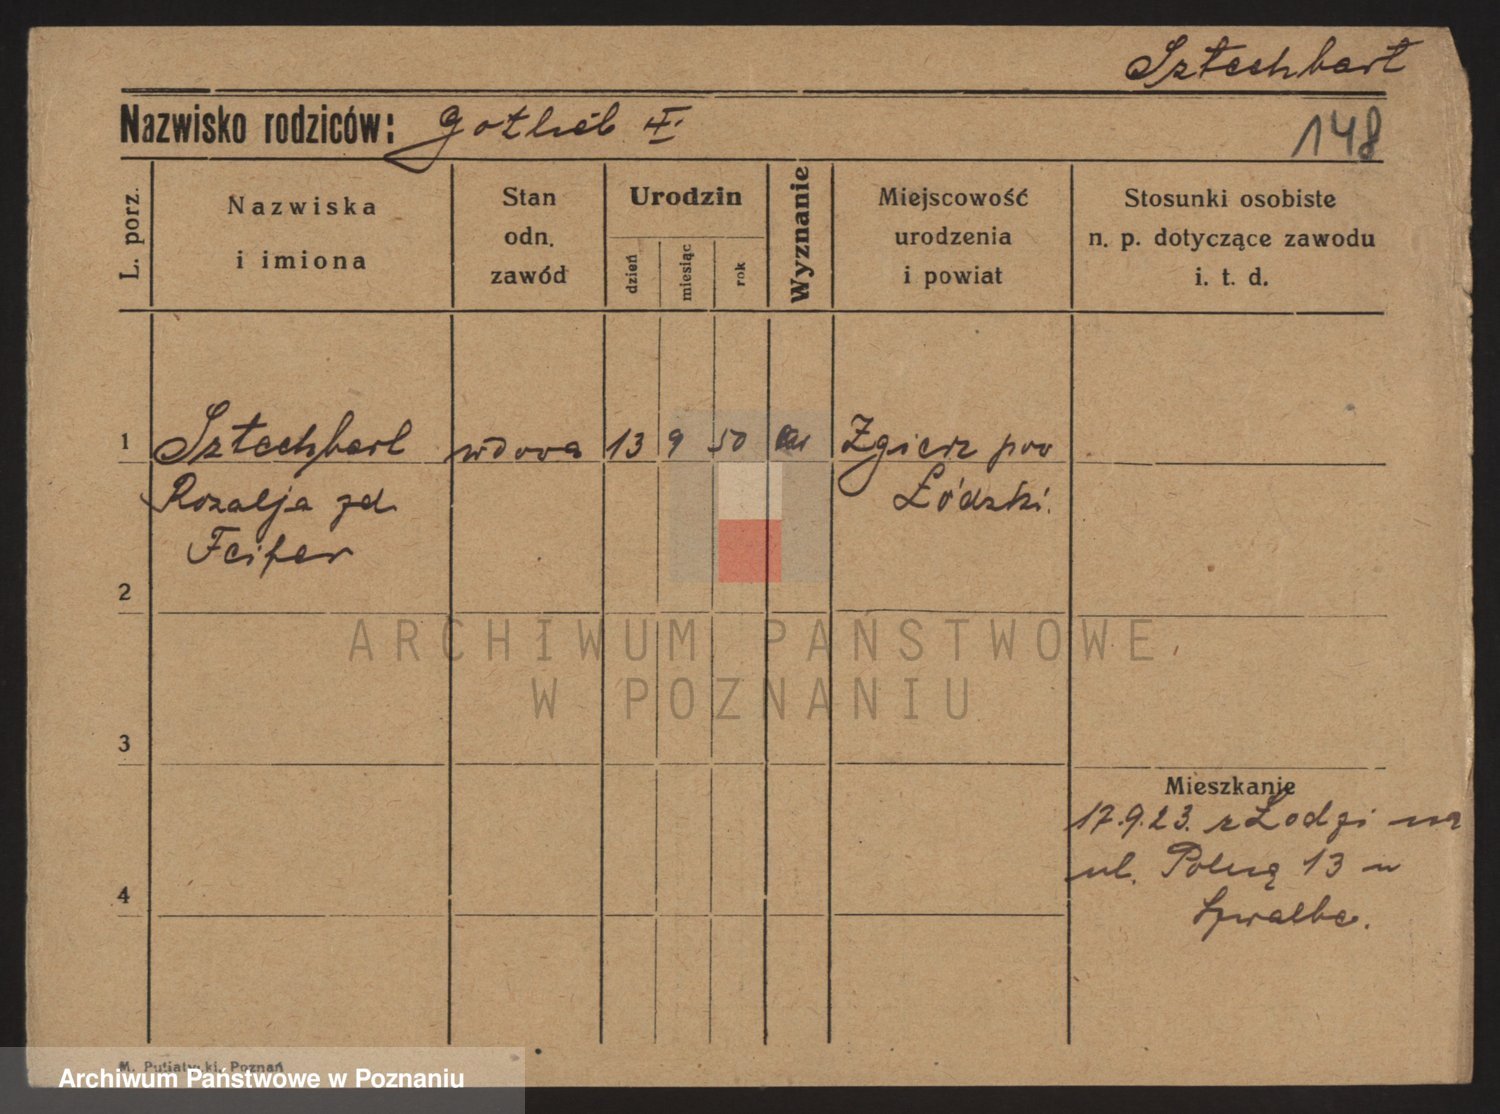 Sztechbart
Nazwisko rodziców: Gotlieb II.
148
L. porz.
Nazwiska
i imiona
Stan
odn.
zawód
Urodzin
dzień
miesiąc
rok
Wyznanie
Miejscowość
urodzenia
i powiat
Stosunki osobiste
n. p. dotyczące zawodu
i. t. d.
1 Sztechbart wdowa 13 9 50 Zgierz pow
Rozalja zd Łódzki.
Feifer
2
ARCHIWUM PAŃSTWOWE
W POZNANIU
3
Mieszkanie
17.9.23. z Łodzi na
ul. Polną 13 u
Szwalbe.
4
M. Putiatycki, Poznań
Archiwum Państwowe w Poznaniu